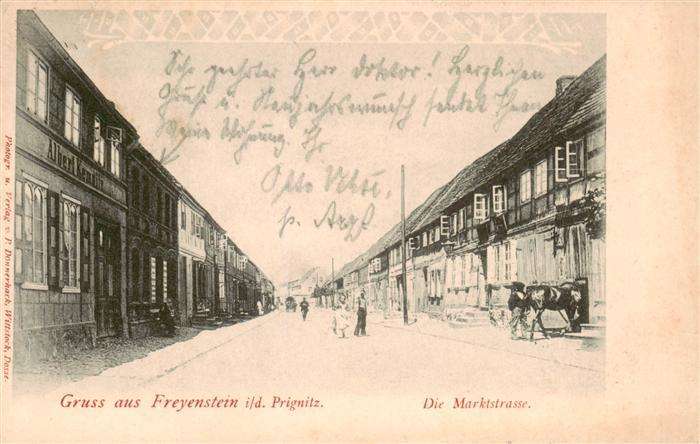 Sehr geehrter Herr Doktor! Herzlichen
Gruß u. Neujahrswunsch sendet Ihnen
Meine Wohnung. Ihr
Otto
Albert
Photogr. u. Verlag v. P. Donnerhack, Wittstock, Dosse.
Gruss aus Freyenstein i/d. Prignitz.
Die Marktstrasse.